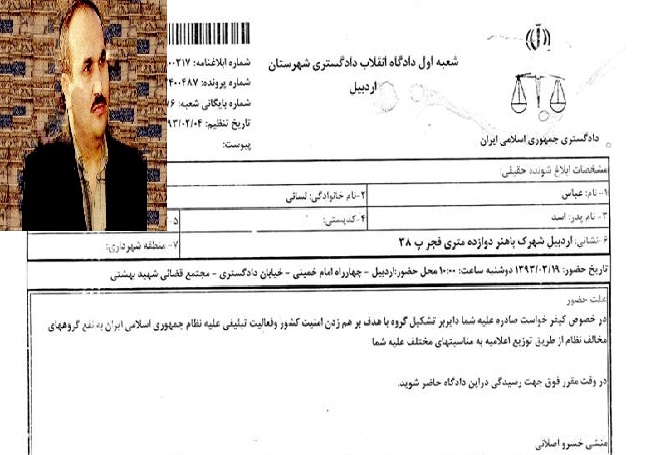 شعبه اول دادگاه انقلاب دادگستری شهرستان
اردبیل
شماره ابلاغنامه:
شماره پرونده:
شماره بایگانی شعبه:
تاریخ تنظیم:
پیوست:
دادگستری جمهوری اسلامی ایران
مشخصات ابلاغ شونده حقیقی:
۱- نام: عباس
۲-نام خانوادگی: لسانی
۳- نام پدر: اسد
۴-کدپستی:
۵-
۶-نشانی: اردبیل شهرک باهنر دوازده متری فجر پ ۳۸
۷- منطقه شهرداری:
تاریخ حضور: ۱۳۹۳/۰۳/۱۹ دوشنبه ساعت: ۱۰:۰۰ محل حضور:اردبیل - چهارراه امام خمینی - خیابان دادگستری - مجتمع قضائی شهید بهشتی
علت حضور
در خصوص کیفر خواست صادره علیه شما دایربر تشکیل گروه با هدف بر هم زدن امنیت کشور وفعالیت تبلیغی علیه نظام جمهوری اسلامی ایران به نفع گروههای
مخالف نظام از طریق توزیع اعلامیه به مناسبتهای مختلف علیه شما
در وقت مقرر فوق جهت رسیدگی دراین دادگاه حاضر شوید.
منشی خسرو اصلانی